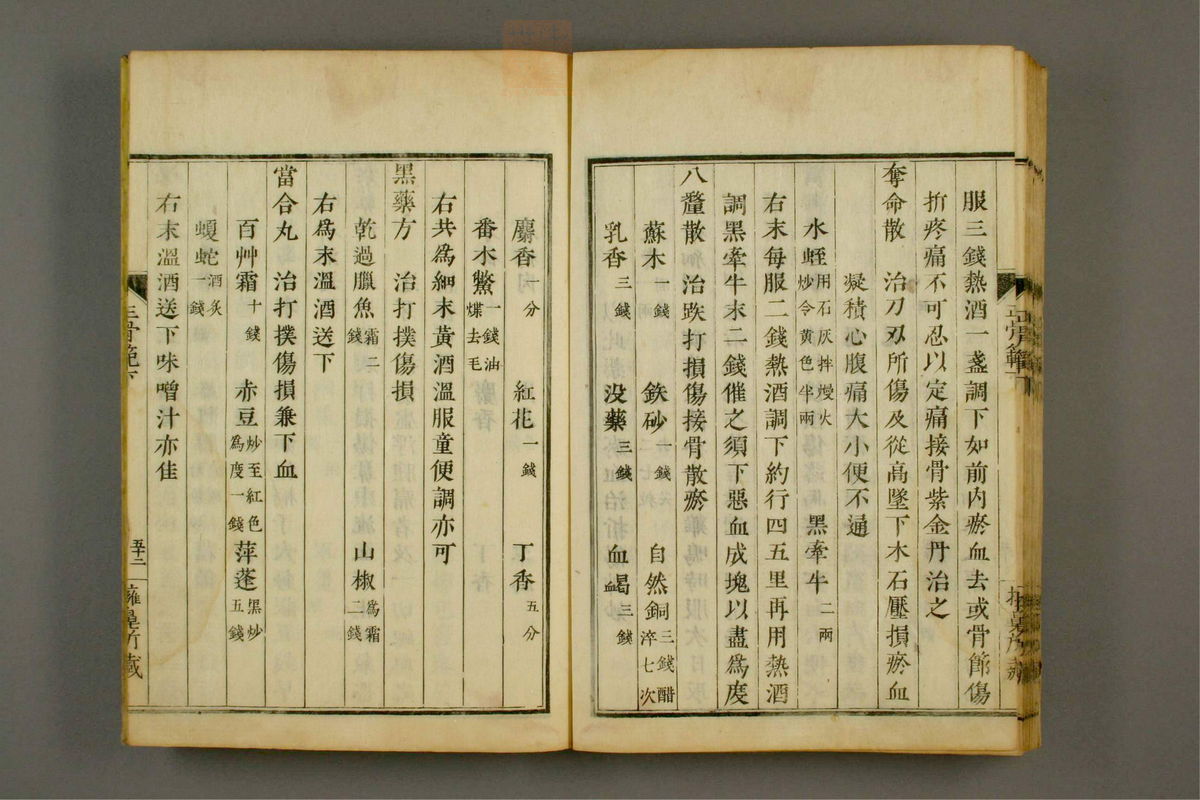 服三錢熱酒一盞調下如前內瘀血去或骨節傷
折疼痛不可忍以定痛接骨紫金丹治之
奪命散 治刀刃所傷及從高墜下木石壓損瘀血
凝積心腹痛大小便不通
水蛭用石灰拌熳火炒令黄色半兩 黑牽牛二兩
右末每服二錢熱酒調下約行四五里再用熱酒
調黑牽牛末二錢催之須下惡血成塊以盡爲度
八釐散 治跌打損傷接骨散瘀
蘇木一錢 鉄砂一錢 自然銅三錢醋淬七次
乳香三錢 没藥三錢 血竭三錢
麝香一分 紅花一錢 丁香五分
番木鱉一錢油煠去毛
右共爲細末黃酒溫服童便調亦可
黑藥方 治打撲傷損
乾過臘魚霜二錢 山椒爲霜二錢
右爲末溫酒送下
當合丸 治打撲傷損兼下血
百艸霜十錢 赤豆炒至紅色爲度一錢 萍蓬黒炒五錢
蝮蛇酒炙一錢
右末溫酒送下味噌汁亦佳
骨範下
五十二